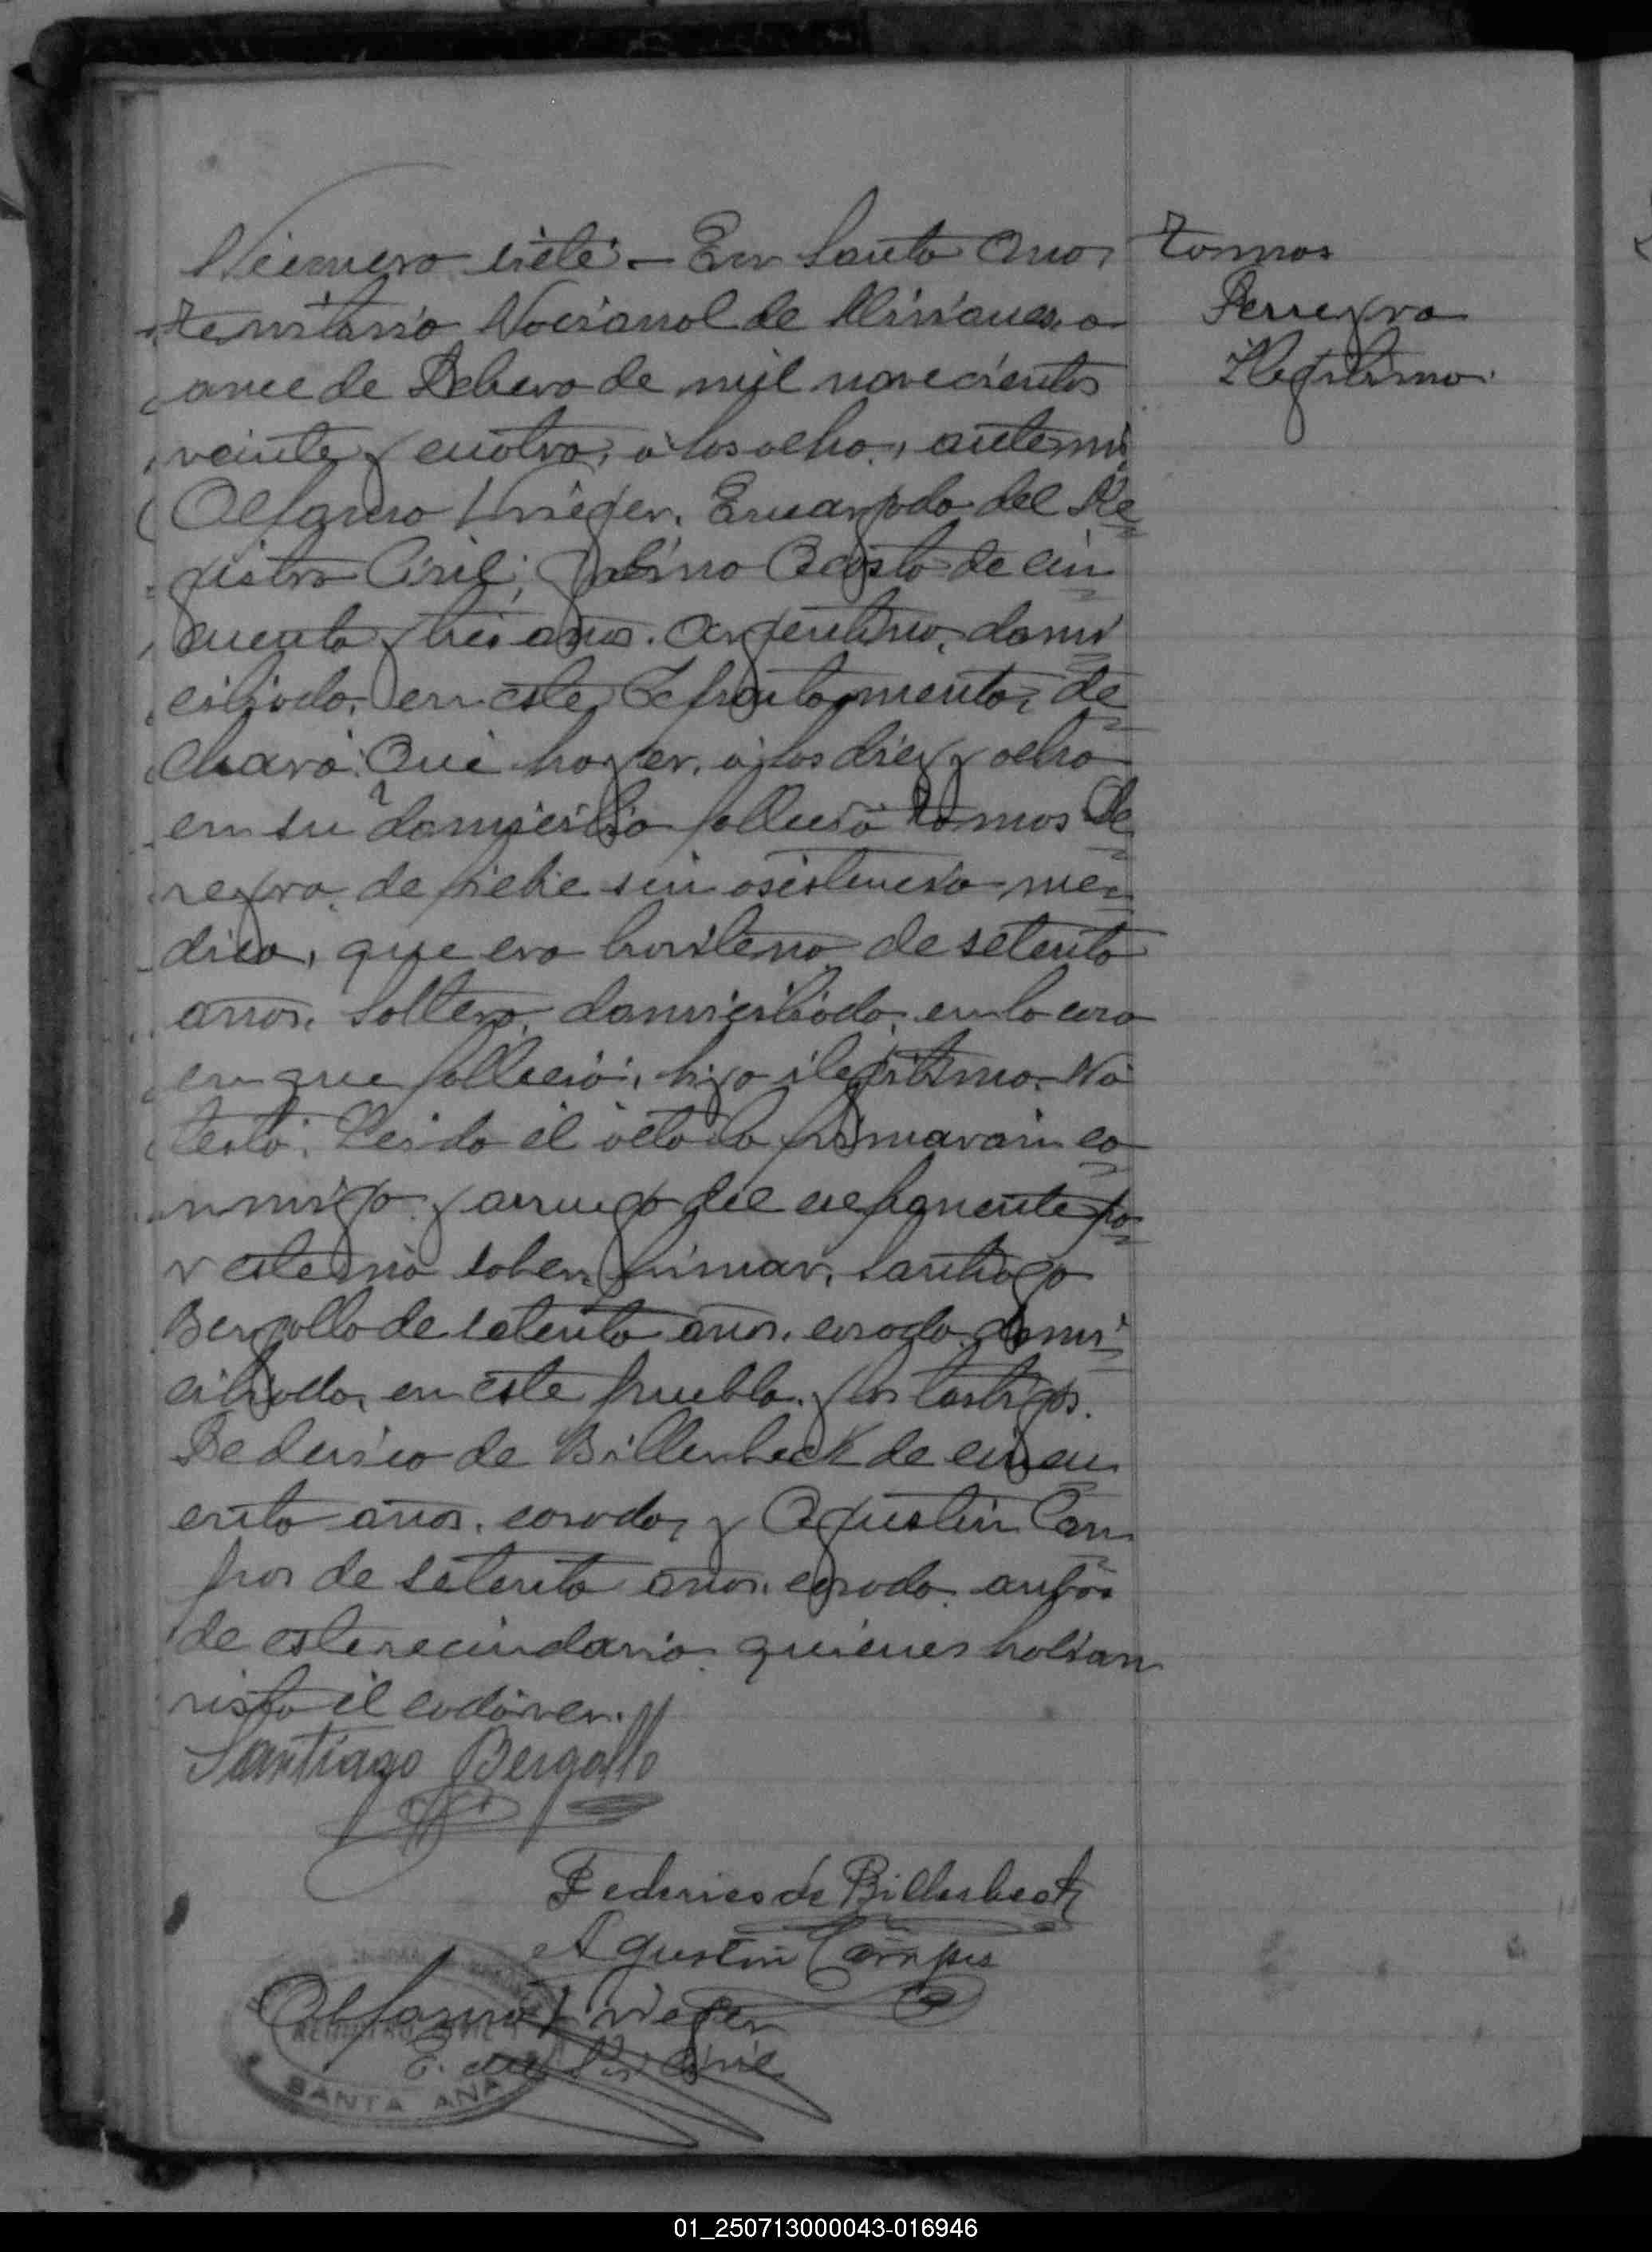 Número siete.- En Santa Ana,
territorio Nacional de Misiones, a
once de Febrero de mil novecientos
veinte y cuatro, a las ocho, ante mi
Krieger, Encargado del Re
gistro Civil; Acosta de cin
cuenta y tres años, Argentino, domi
ciliado, en este Departamento, de
claró: Que hayer, a las diez y ocho
en su domicilio falleció Tomas Pe
reyra, de fiebre sin asistencia me
dica, que era brasilero de setenta
años, soltero, domiciliado, en la casa
en que falleció, hijo ilegitimo. No
testó. Leido el acta la firmaron co
nmigo y a ruego del esponente po
r este no saber firmar, Santiago
Bergallo de setenta años, casado, domi
ciliado, en este pueblo, y los testigos.
Federico de Billerbeck de cincu
enta años, casado, y Agustin Cam
pos de setenta años, casado, ambos
de este vecindario, quienes habian
visto el cadáver.
Santiago Bergallo
Federico de Billerbeck
Agustin Campos
Krieger
E. del R. Civil
REGISTRO CIVIL
SANTA ANA
Tomas
Pereyra
Ilegitimo.
01_250713000043-016946